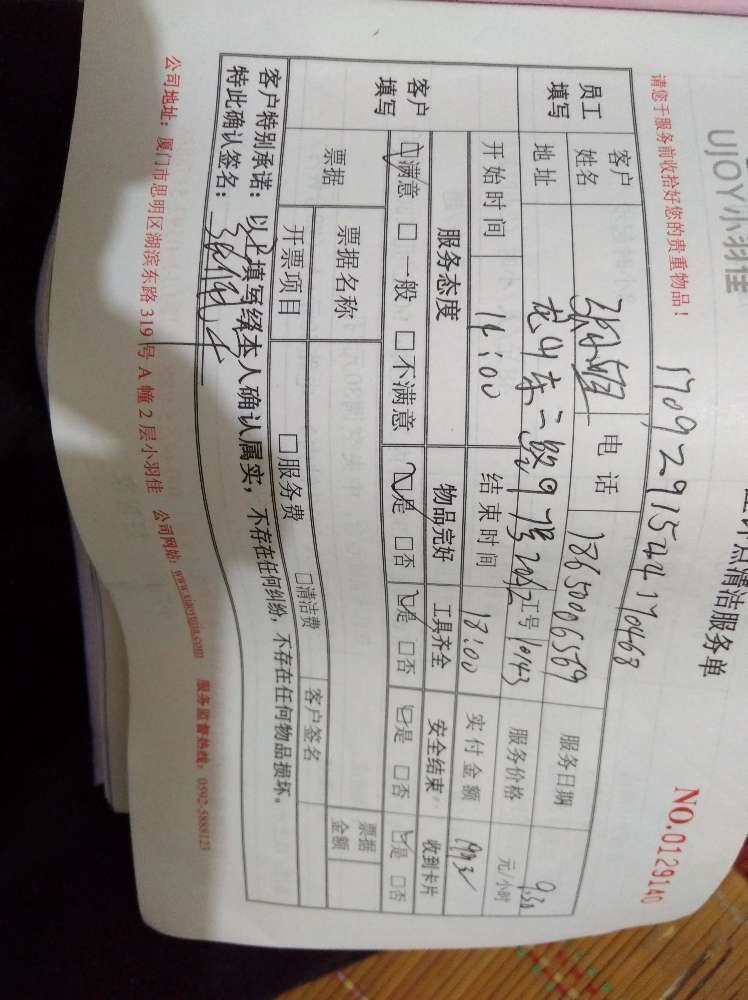 UJOY小羽佳
点清洁服务单
NO.0129140
请您于服务前收拾好您的贵重物品！
1709291544170468
员工填写
客户姓名
电话 18650006569
服务日期 9.30
地址
工号 10143
服务价格 元/小时
开始时间 14:00 结束时间 18:00 实付金额
客户填写
服务态度 物品完好 工具齐全 安全结束 收到卡片
☑满意 □一般 □不满意 ☑是 □否 ☑是 □否 ☑是 □否 ☑是 □否
票据 票据名称 票据金额
开票项目 □服务费 □清洁费 客户签名
客户特别承诺：以上填写经本人确认属实，不存在任何纠纷，不存在任何物品损坏。
特此确认签名：
公司地址：厦门市思明区湖滨东路319号A幢2层小羽佳 公司网站：www.xiaoyujia.com 服务监督热线：0592-5888123